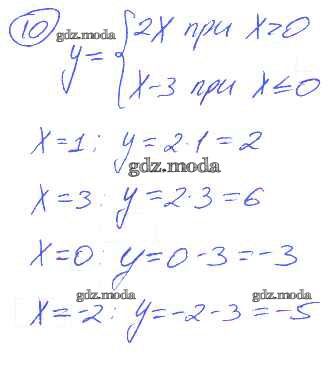 10 gdz.moda
y = { 2x при x>0
x-3 при x≤0
x=1: y=2·1=2
gdz.moda
x=3: y=2·3=6
x=0: y=0-3=-3
gdz.moda gdz.moda
x=-2: y=-2-3=-5